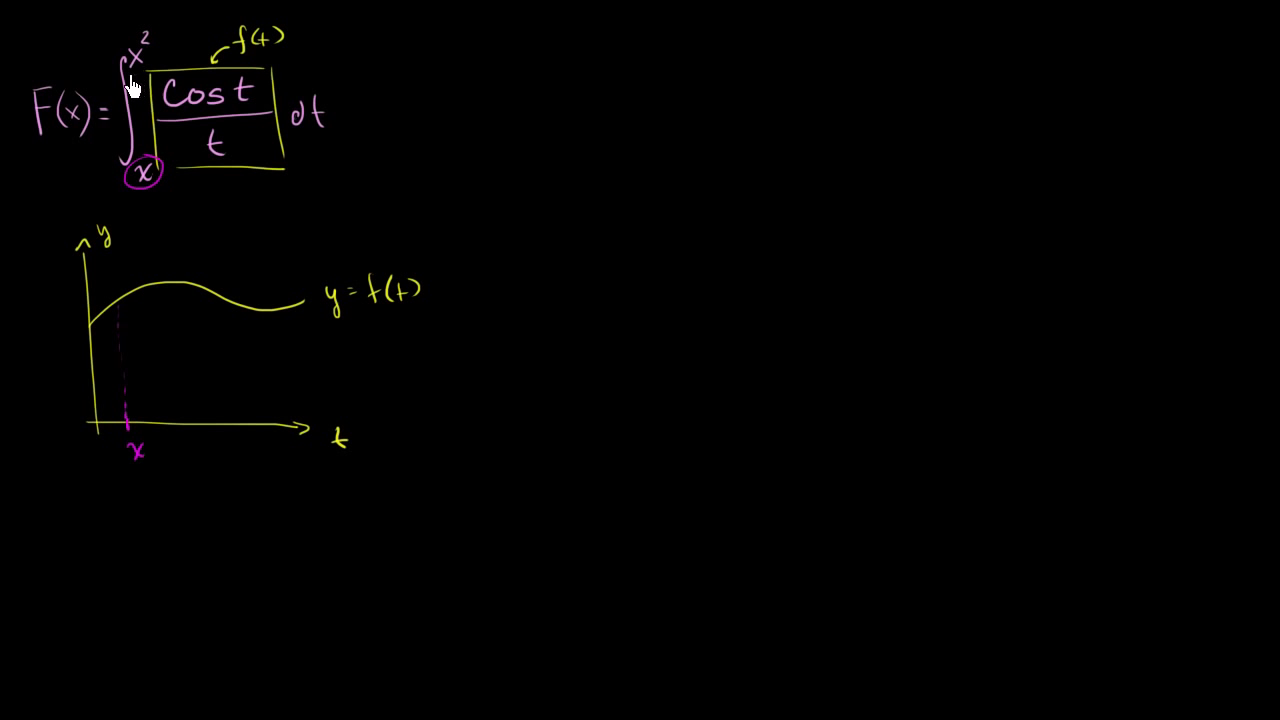 F(x) = ∫ₓ^x² cos t / t dt
f(t)
y
y = f(t)
t
x